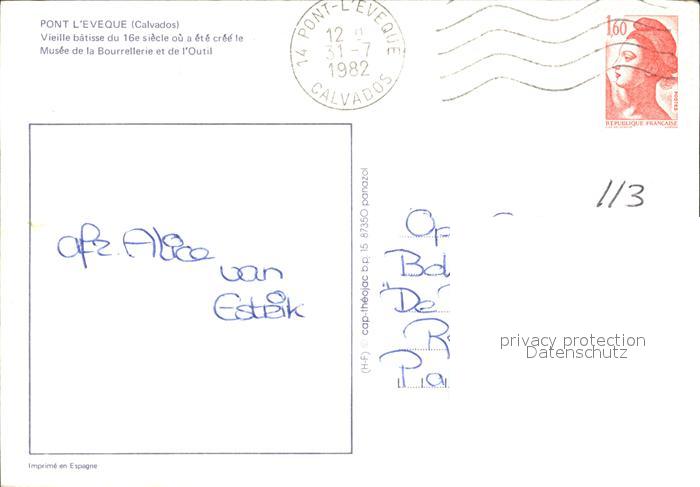 PONT L'EVEQUE (Calvados)
Vieille bâtisse du 16e siècle où a été créé le
Musée de la Bourrellerie et de l'Outil
14 PONT-L'EVEQUE
12 H
31-7
1982
CALVADOS
1,60
POSTES
REPUBLIQUE FRANÇAISE
113
afz. Alice
van
Estrik
(H-F) © cap-théojac b.p. 15 87350 panazol
Op
Bol
"De
R
Pa
privacy protection
Datenschutz
Imprimé en Espagne